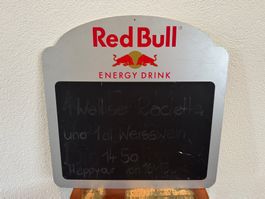 Red Bull
ENERGY DRINK
4 Walliser Raclette
und 1dl Weisswein
14.50
Happyour von